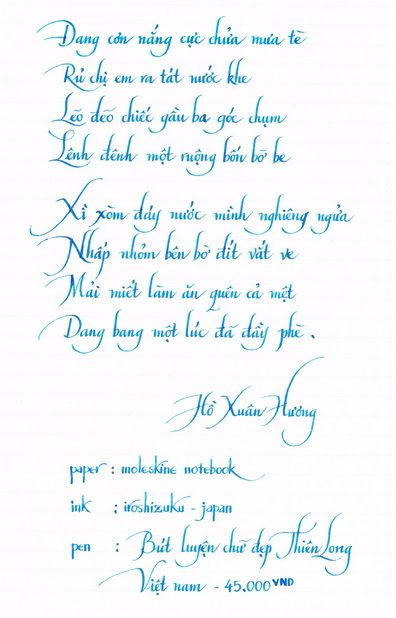 Đang cơn nắng cực chửa mưa tè
Rủ chị em ra tát nước khe
Lẽo đẽo chiếc gầu ba góc chụm
Lênh đênh một ruộng bốn bờ be
Xì xòm đáy nước mình nghiêng ngửa
Nhấp nhỏm bên bờ đít vắt ve
Mải miết làm ăn quên cả mệt
Dang bang một lúc đã đầy phè .
Hồ Xuân Hương
paper : moleskine notebook
ink : iroshizuku - japan
pen : Bút luyện chữ đẹp Thiên Long
Việt nam - 45.000 VND